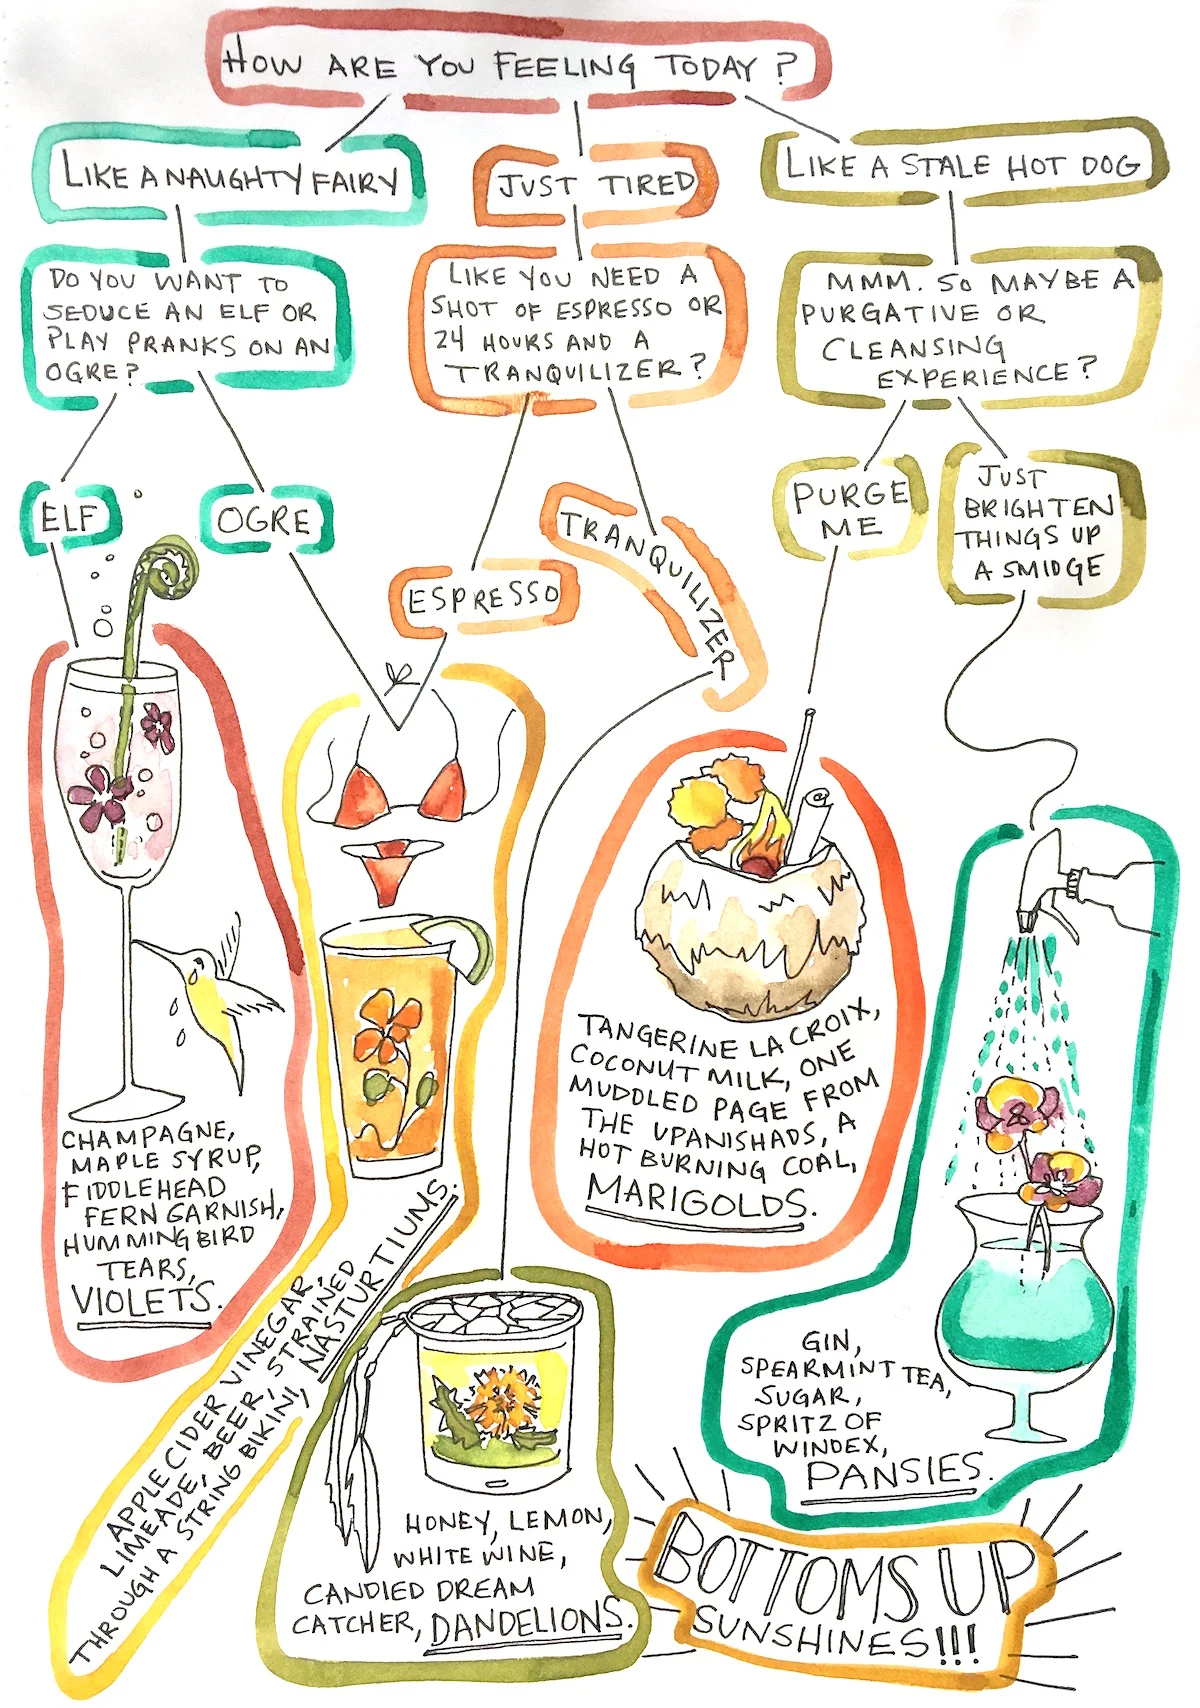 HOW ARE YOU FEELING TODAY?
LIKE A NAUGHTY FAIRY
JUST TIRED
LIKE A STALE HOT DOG
DO YOU WANT TO
SEDUCE AN ELF OR
PLAY PRANKS ON AN
OGRE?
LIKE YOU NEED A
SHOT OF ESPRESSO OR
24 HOURS AND A
TRANQUILIZER?
MMM. SO MAYBE A
PURGATIVE OR
CLEANSING
EXPERIENCE?
ELF
OGRE
ESPRESSO
TRANQUILIZER
PURGE
ME
JUST
BRIGHTEN
THINGS UP
A SMIDGE
CHAMPAGNE,
MAPLE SYRUP,
FIDDLEHEAD
FERN GARNISH,
HUMMINGBIRD
TEARS,
VIOLETS.
APPLE CIDER VINEGAR,
LIMEADE, BEER, STRAINED
THROUGH A STRING BIKINI, NASTURTIUMS.
HONEY, LEMON,
WHITE WINE,
CANDIED DREAM
CATCHER, DANDELIONS.
TANGERINE LA CROIX,
COCONUT MILK, ONE
MUDDLED PAGE FROM
THE UPANISHADS, A
HOT BURNING COAL,
MARIGOLDS.
GIN,
SPEARMINT TEA,
SUGAR,
SPRITZ OF
WINDEX,
PANSIES.
BOTTOMS UP
SUNSHINES!!!